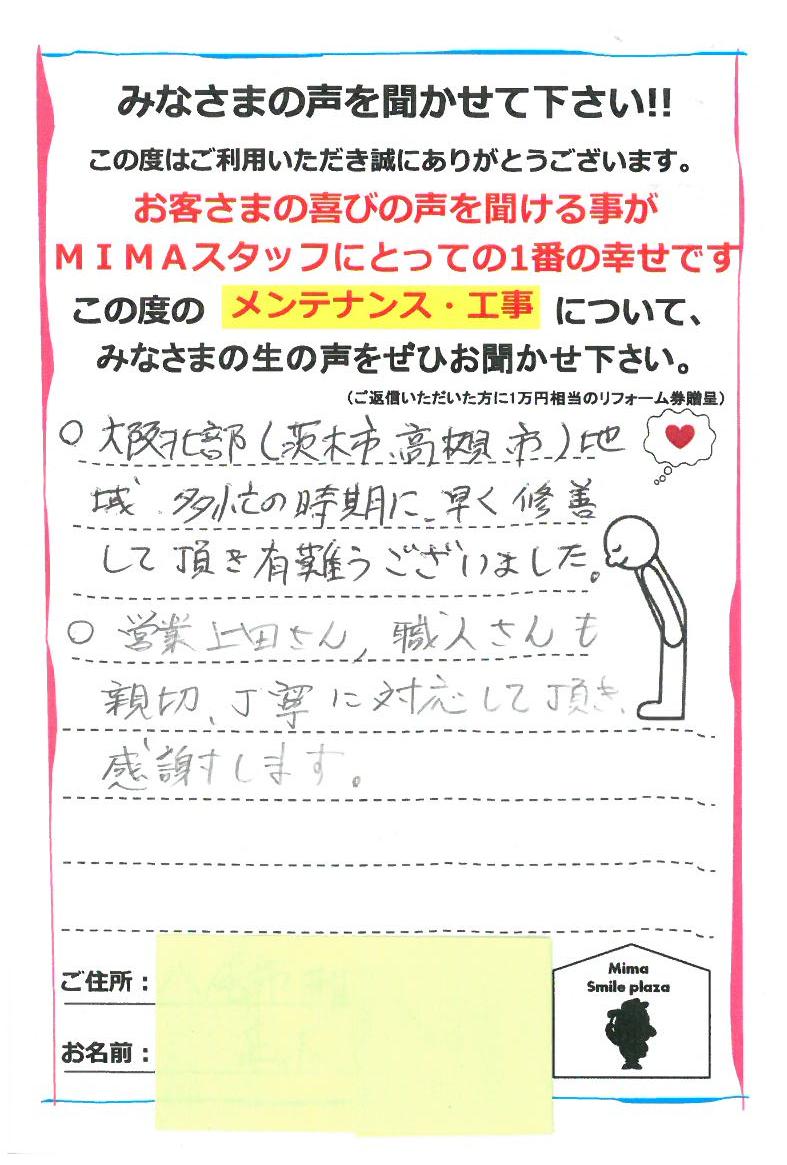 みなさまの声を聞かせて下さい!!
この度はご利用いただき誠にありがとうございます。
お客さまの喜びの声を聞ける事が
ＭＩＭＡスタッフにとっての1番の幸せです
この度の メンテナンス・工事 について、
みなさまの生の声をぜひお聞かせ下さい。
(ご返信いただいた方に1万円相当のリフォーム券贈呈)
○ 大阪北部(茨木市、高槻市)地
域 多忙の時期に、早く修善
して頂き有難うございました。
○ 営業上田さん, 職人さんも
親切、丁寧に対応して頂き、
感謝します。
ご住所：
お名前：
Mima
Smile plaza